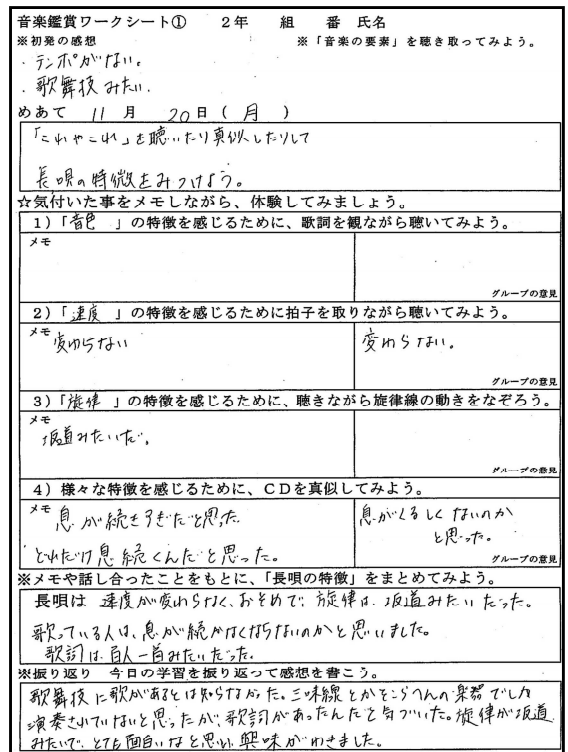 音楽鑑賞ワークシート① 2年 組 番 氏名
※初発の感想 ※「音楽の要素」を聴き取ってみよう。
・テンポがない。
・歌舞伎みたい。
めあて 11月 20日(月)
「これやこれ」を聴いたり真似したりして
長唄の特徴をみつけよう。
☆気付いた事をメモしながら、体験してみましょう。
1)「音色 」の特徴を感じるために、歌詞を観ながら聴いてみよう。
メモ
グループの意見
2)「速度 」の特徴を感じるために拍子を取りながら聴いてみよう。
メモ 変わらない 変わらない。
グループの意見
3)「旋律 」の特徴を感じるために、聴きながら旋律線の動きをなぞろう。
メモ
坂道みたいだ。
グループの意見
4)様々な特徴を感じるために、CDを真似してみよう。
メモ 息が続きすぎだと思った 息がくるしくないのか
と思った。
どれだけ息続くんだと思った。
グループの意見
※メモや話し合ったことをもとに、「長唄の特徴」をまとめてみよう。
長唄は 速度が変わらなく、おそめで、旋律は、坂道みたいだった。
歌っている人は、息が続かなくならないのかと思いました。
歌詞は百人一首みたいだった。
※振り返り 今日の学習を振り返って感想を書こう。
歌舞伎に歌があるとは知らなかった。三味線とかそこらへんの楽器でしか
演奏されていないと思ったが、歌詞があったんだと気づいた。旋律が坂道
みたいで、とても面白いなと思い、興味がわきました。